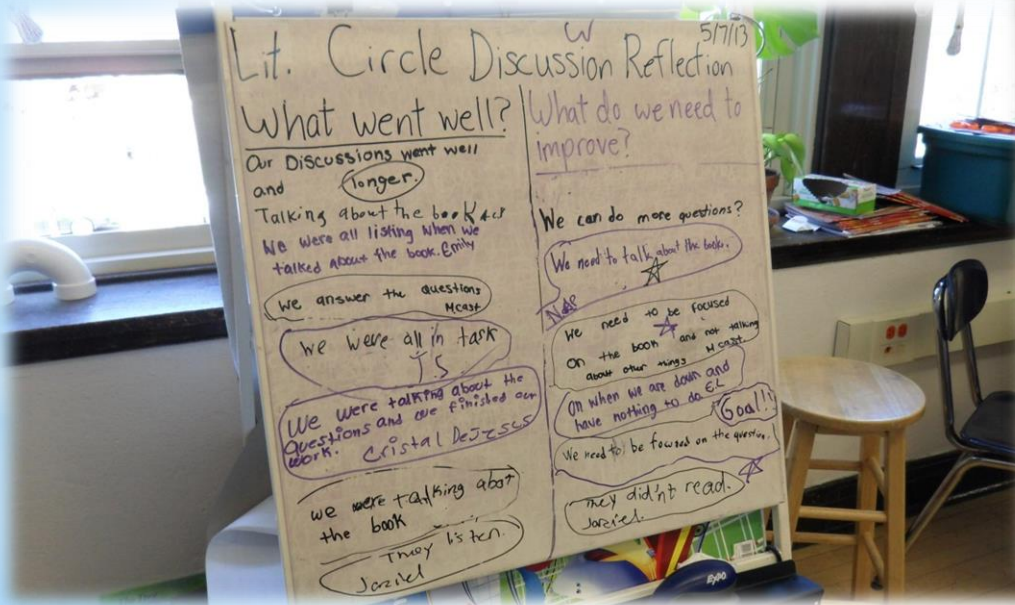 W
5/7/13
Lit. Circle Discussion Reflection
What went well?
Our Discussions went well
and longer.
Talking about the book
We were all listing when we
talked about the book. Emily
We answer the questions
Mcast
We were all in task
JS
We were talking about the
questions and we finished our
work. Cristal DeJesus
we were talking about
the book
They listen.
Jaziel
What do we need to
improve?
We can do more questions?
We need to talk about the books.
We need to be focused
on the book and not talking
about other things Mcast.
On when we are down and
have nothing to do E.L
Goal!!
We need to be focused on the question.
They didn't read.
Jaziel.
EXPO